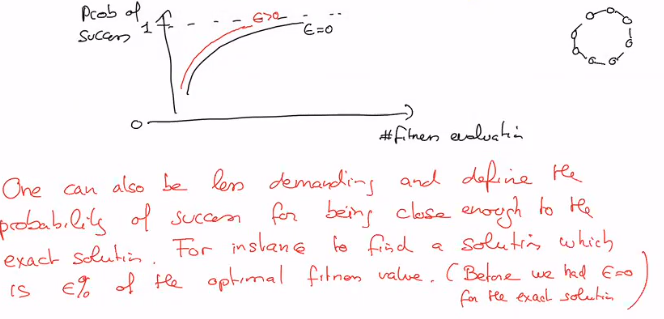 Prob of
success
1
ε>0
ε=0
0
# fitness evaluation
One can also be less demanding and define the
probability of success for being close enough to the
exact solution. For instance to find a solution which
is ε% of the optimal fitness value. (Before we had ε=0
for the exact solution)